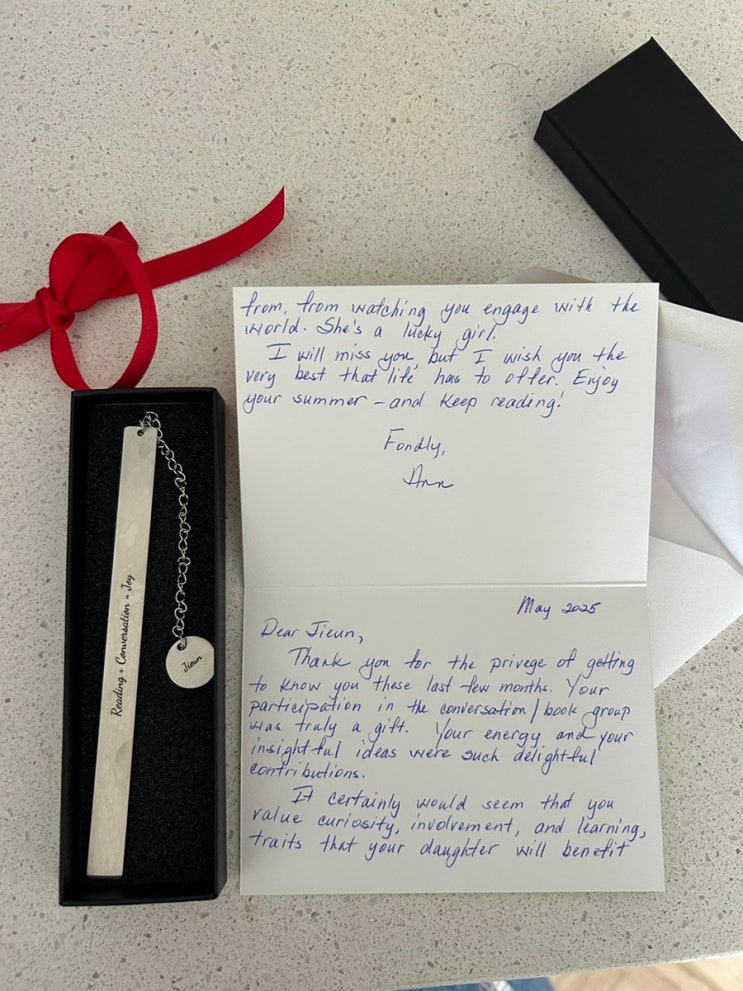 Reading + Conversation = Joy
Jieun
May 2025
Dear Jieun,
Thank you for the privege of getting
to know you these last few months. Your
participation in the conversation/book group
was truly a gift. Your energy and your
insightful ideas were such delightful
contributions.
It certainly would seem that you
value curiosity, involvement, and learning,
traits that your daughter will benefit
from, from watching you engage with the
world. She's a lucky girl.
I will miss you, but I wish you the
very best that life has to offer. Enjoy
your summer - and keep reading!
Fondly,
Ann